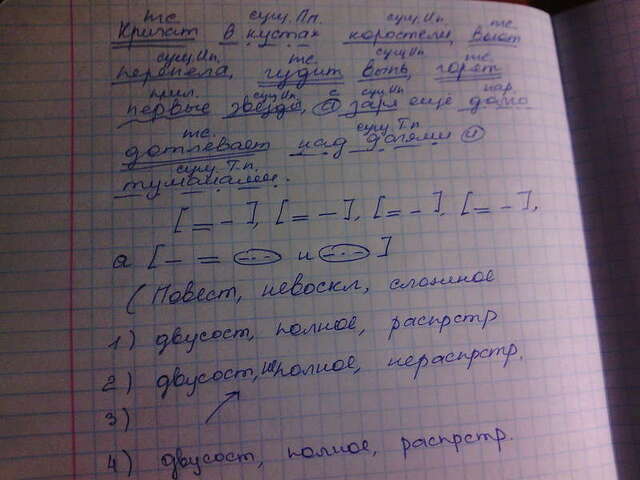 гл. сущ. П.п. сущ. И.п. гл.
Кричат в кустах коростели, воют
сущ. И.п. гл. сущ И.п. гл.
перепела, гудит выпь, горят
прил. сущ. И.п. с сущ И.п. нар.
первые звезды, а заря ещё долго
гл. сущ. Т.п.
дотлевает над долями и
сущ. Т.п.
туманами.
[= -], [= -], [= -], [= -],
а [- = -·- и -·-]
(Повест, невоскл, сложное
1) двусост, полное, распрстр
2) двусост, полное, нераспрстр.
3)
4) двусост, полное, распрстр.